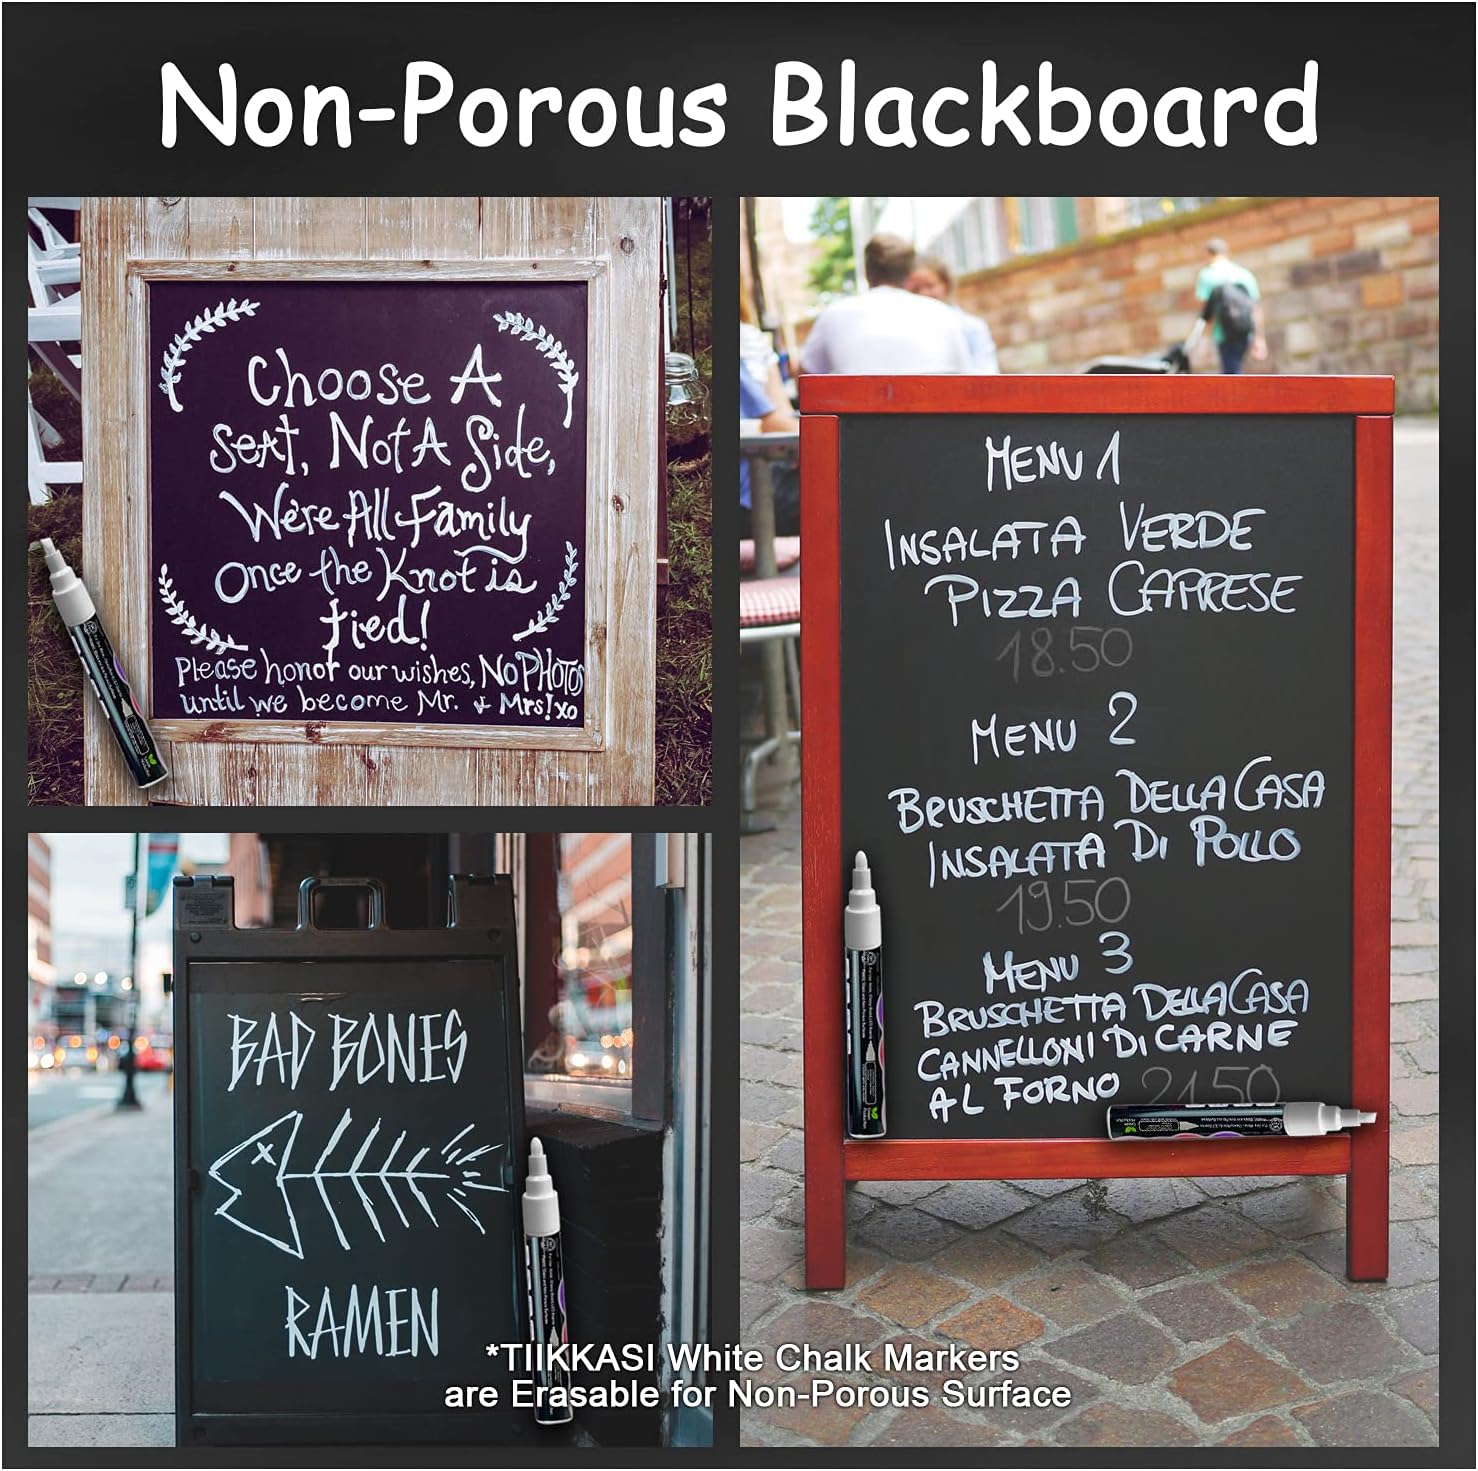 Non-Porous Blackboard
Choose A
Seat, Not A Side,
We're All Family
Once the Knot is
tied!
Please honor our wishes, NO PHOTOS
until we become Mr. & Mrs! xo
BAD BONES
RAMEN
MENU 1
INSALATA VERDE
PIZZA CAPRESE
18.50
MENU 2
BRUSCHETTA DELLA CASA
INSALATA DI POLLO
19.50
MENU 3
BRUSCHETTA DELLA CASA
CANNELLONI DI CARNE
AL FORNO 21.50
*TIIKKASI White Chalk Markers
are Erasable for Non-Porous Surface